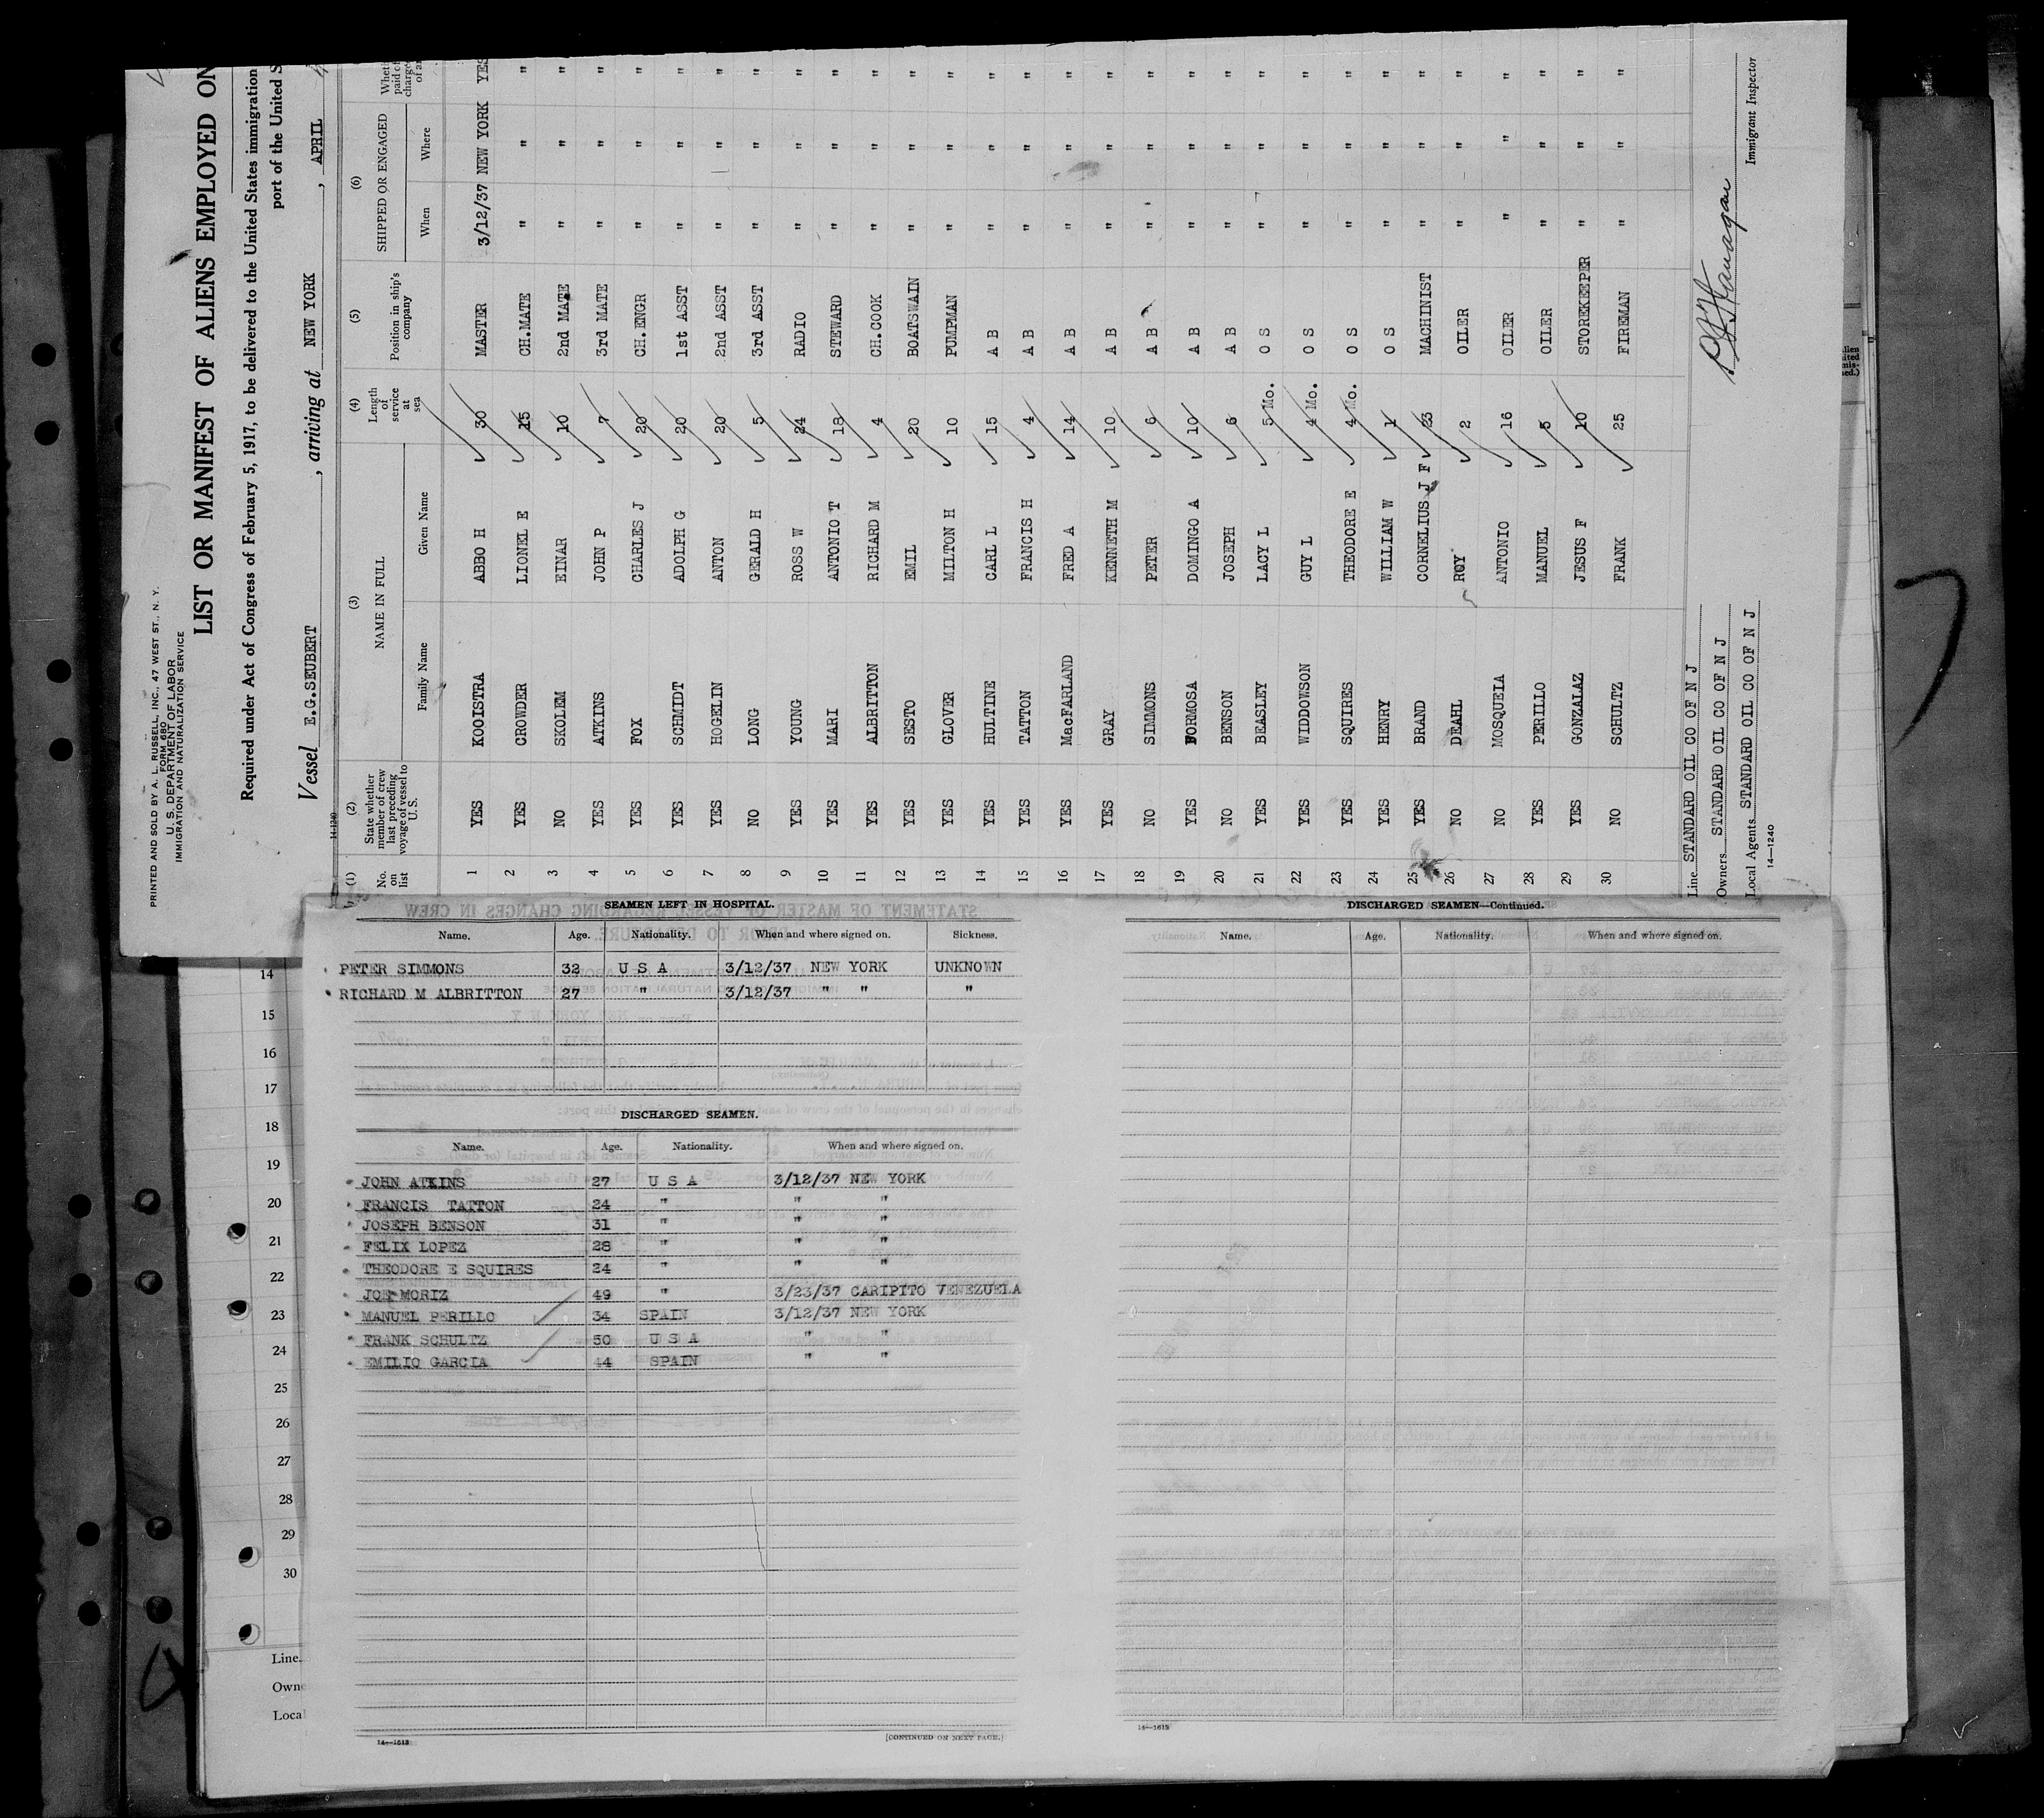 PRINTED AND SOLD BY A. L. RUSSELL, INC., 47 WEST ST., N. Y.
FORM 680
U. S. DEPARTMENT OF LABOR
IMMIGRATION AND NATURALIZATION SERVICE
LIST OR MANIFEST OF ALIENS EMPLOYED ON
Required under Act of Congress of February 5, 1917, to be delivered to the United States immigration
port of the United S
Vessel E.G.SEUBERT , arriving at NEW YORK , APRIL
14-1240
(1) (2) (3) (4) (5) (6)
No. on list State whether member of crew last preceding voyage of vessel to U. S. NAME IN FULL Length of service at sea Position in ship's company SHIPPED OR ENGAGED
Family Name Given Name When Where
1 YES KOOISTRA ABBO H 30 MASTER 3/12/37 NEW YORK YES
2 YES CROWDER LIONEL E 15 CH.MATE " " "
3 NO SKOLEM EINAR 10 2nd MATE " " "
4 YES ATKINS JOHN P 7 3rd MATE " " "
5 YES FOX CHARLES J 20 CH.ENGR " " "
6 YES SCHMIDT ADOLPH G 20 1st ASST " " "
7 YES HOGELIN ANTON 20 2nd ASST " " "
8 NO LONG GERALD H 5 3rd ASST " " "
9 YES YOUNG ROSS W 24 RADIO " " "
10 YES MARI ANTONIO T 18 STEWARD " " "
11 YES ALBRITTON RICHARD M 4 CH.COOK " " "
12 YES SESTO EMIL 20 BOATSWAIN " " "
13 YES GLOVER MILTON H 10 PUMPMAN " " "
14 YES HULTINE CARL L 15 A B " " "
15 YES TATTON FRANCIS H 4 A B " " "
16 YES MacFARLAND FRED A 14 A B " " "
17 YES GRAY KENNETH M 10 A B " " "
18 NO SIMMONS PETER 6 A B " " "
19 YES FORMOSA DOMINGO A 10 A B " " "
20 NO BENSON JOSEPH 6 A B " " "
21 YES BEASLEY LACY L 5 Mo. O S " " "
22 YES WIDDOWSON GUY L 4 Mo. O S " " "
23 YES SQUIRES THEODORE E 4 Mo. O S " " "
24 YES HENRY WILLIAM W 1 O S " " "
25 YES BRAND CORNELIUS J F 23 MACHINIST " " "
26 NO DEAHL ROY 2 OILER " " "
27 NO MOSQUEIA ANTONIO 16 OILER " " "
28 YES PERILLO MANUEL 5 OILER " " "
29 YES GONZALAZ JESUS F 10 STOREKEEPER " " "
30 NO SCHULTZ FRANK 25 FIREMAN " " "
Line STANDARD OIL CO OF N J
Owners STANDARD OIL CO OF N J
Local Agents STANDARD OIL CO OF N J
Immigrant Inspector
14—1240
SEAMEN LEFT IN HOSPITAL.
Name. Age. Nationality. When and where signed on. Sickness.
PETER SIMMONS 32 U S A 3/12/37 NEW YORK UNKNOWN
RICHARD M ALBRITTON 27 " 3/12/37 " " "
DISCHARGED SEAMEN.
Name. Age. Nationality. When and where signed on.
JOHN ATKINS 27 U S A 3/12/37 NEW YORK
FRANCIS TATTON 24 " " "
JOSEPH BENSON 31 " " "
FELIX LOPEZ 28 " " "
THEODORE E SQUIRES 24 " " "
JOE MORIZ 49 " 3/23/37 CARIPITO VENEZUELA
MANUEL PERILLO 34 SPAIN 3/12/37 NEW YORK
FRANK SCHULTZ 50 U S A " "
EMILIO GARCIA 44 SPAIN " "
14—1613
[CONTINUED ON NEXT PAGE.]
DISCHARGED SEAMEN—Continued.
Name. Age. Nationality. When and where signed on.
14—1613
14
15
16
17
18
19
20
21
22
23
24
25
26
27
28
29
30
Line
Owne
Local